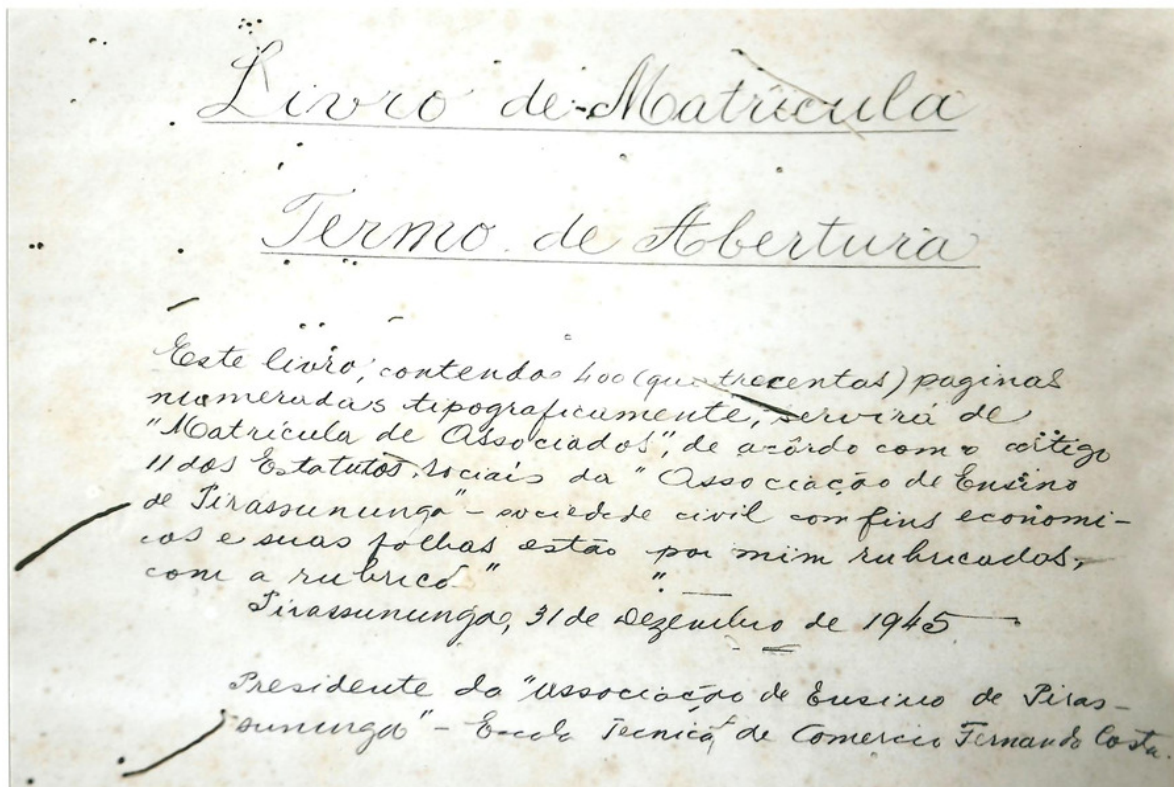 Livro de Matricula
Termo de Abertura
Este livro, contendo 400 (quatrocentas) paginas
numeradas tipograficamente, servirá de
"Matricula de Associados", de acôrdo com o artigo
11 dos Estatutos sociais da "Associação de Ensino
de Pirassununga" - sociedade civil com fins economi-
cos e suas folhas estão por mim rubricadas,
com a rubrica " "
Pirassununga, 31 de Dezembro de 1945
Presidente da "Associação de Ensino de Piras-
sununga" - Escola Tecnica de Comercio Fernando Costa.